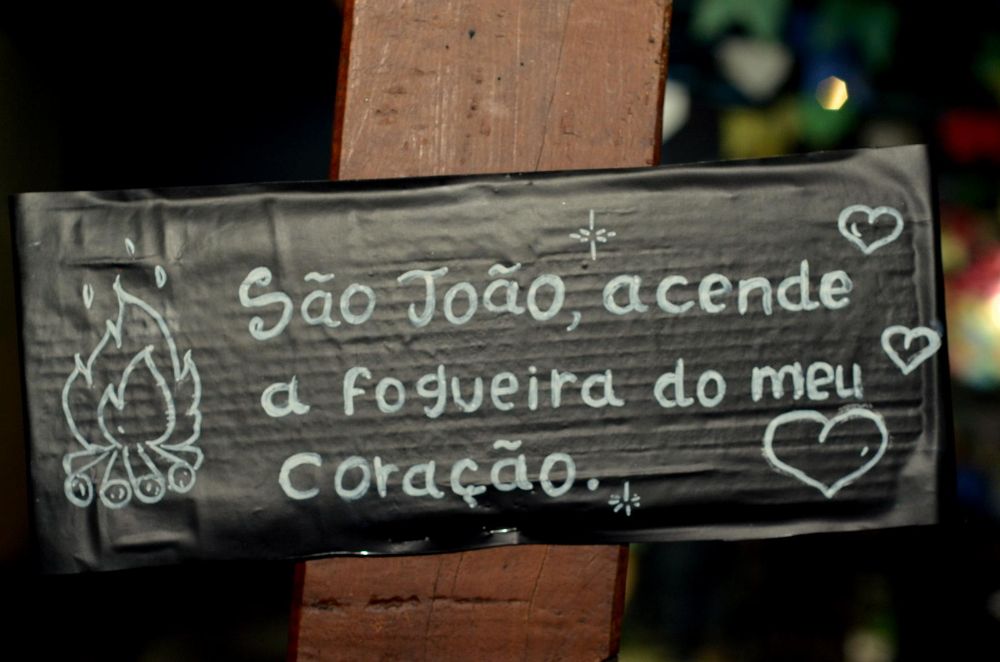 São João, acende
a fogueira do meu
coração.